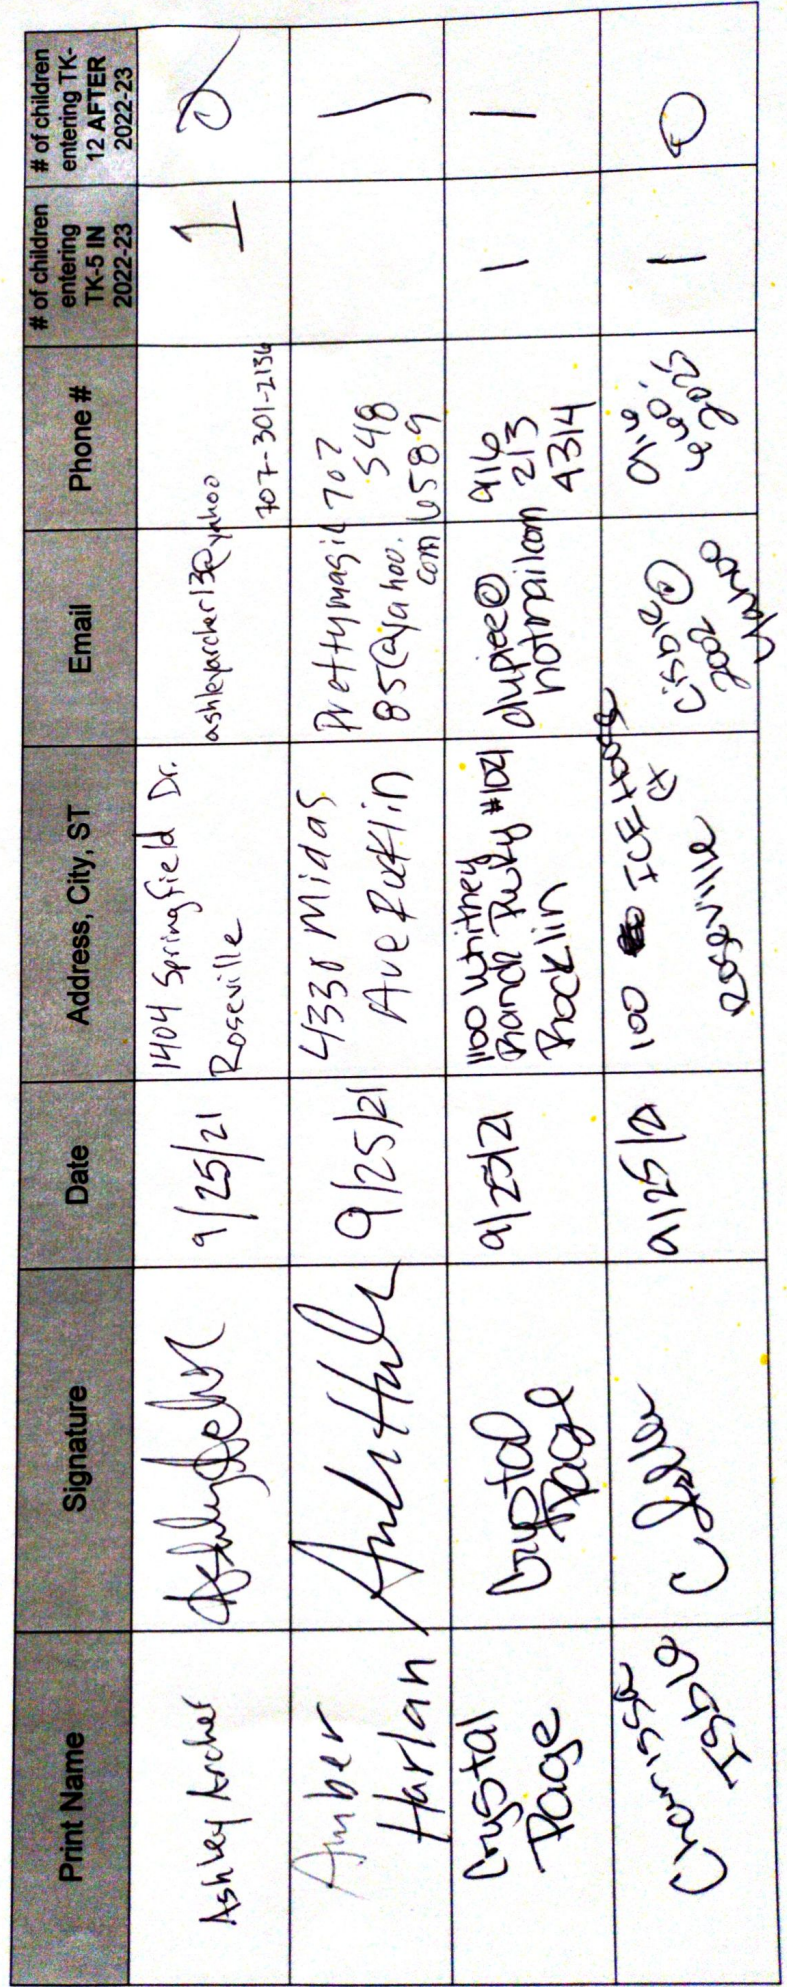 Print Name
Signature
Date
Address, City, ST
Email
Phone #
# of children
entering
TK-5 IN
2022-23
# of children
entering TK-
12 AFTER
2022-23
Ashley Archer
9/25/21
1404 Springfield Dr.
Roseville
ashleyarcher13@yahoo
707-301-2136
1
2
Amber
Harlan
9/25/21
4330 Midas
Ave Rocklin
Prettymagic
85@yahoo.
com
707
548
6589
1
Crystal
Page
Crystal
Page
9/25/21
1100 Whitney
Ranch Pkwy #1021
Rocklin
hotmail.com
916
213
4314
1
1
Charrissa
Isble
9/25/21
100 ICE House
Ct
Roseville
Cisble
2002@
yahoo
916
660
2025
1
0